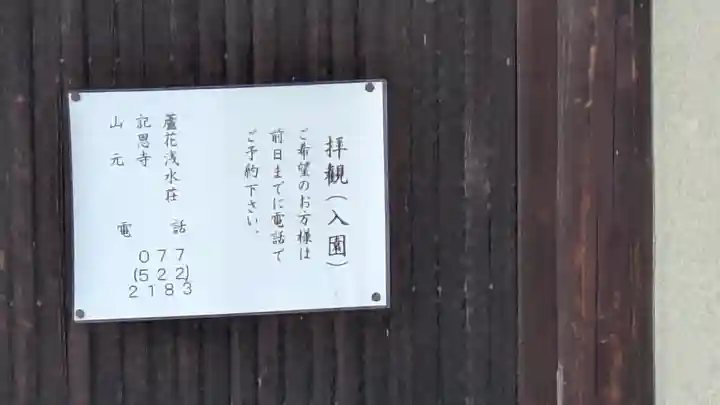 拝観(入園)
ご希望のお方様は
前日までに電話で
ご予約下さい。
蘆花浅水荘
記恩寺
山元
電話
077
(522)
2183